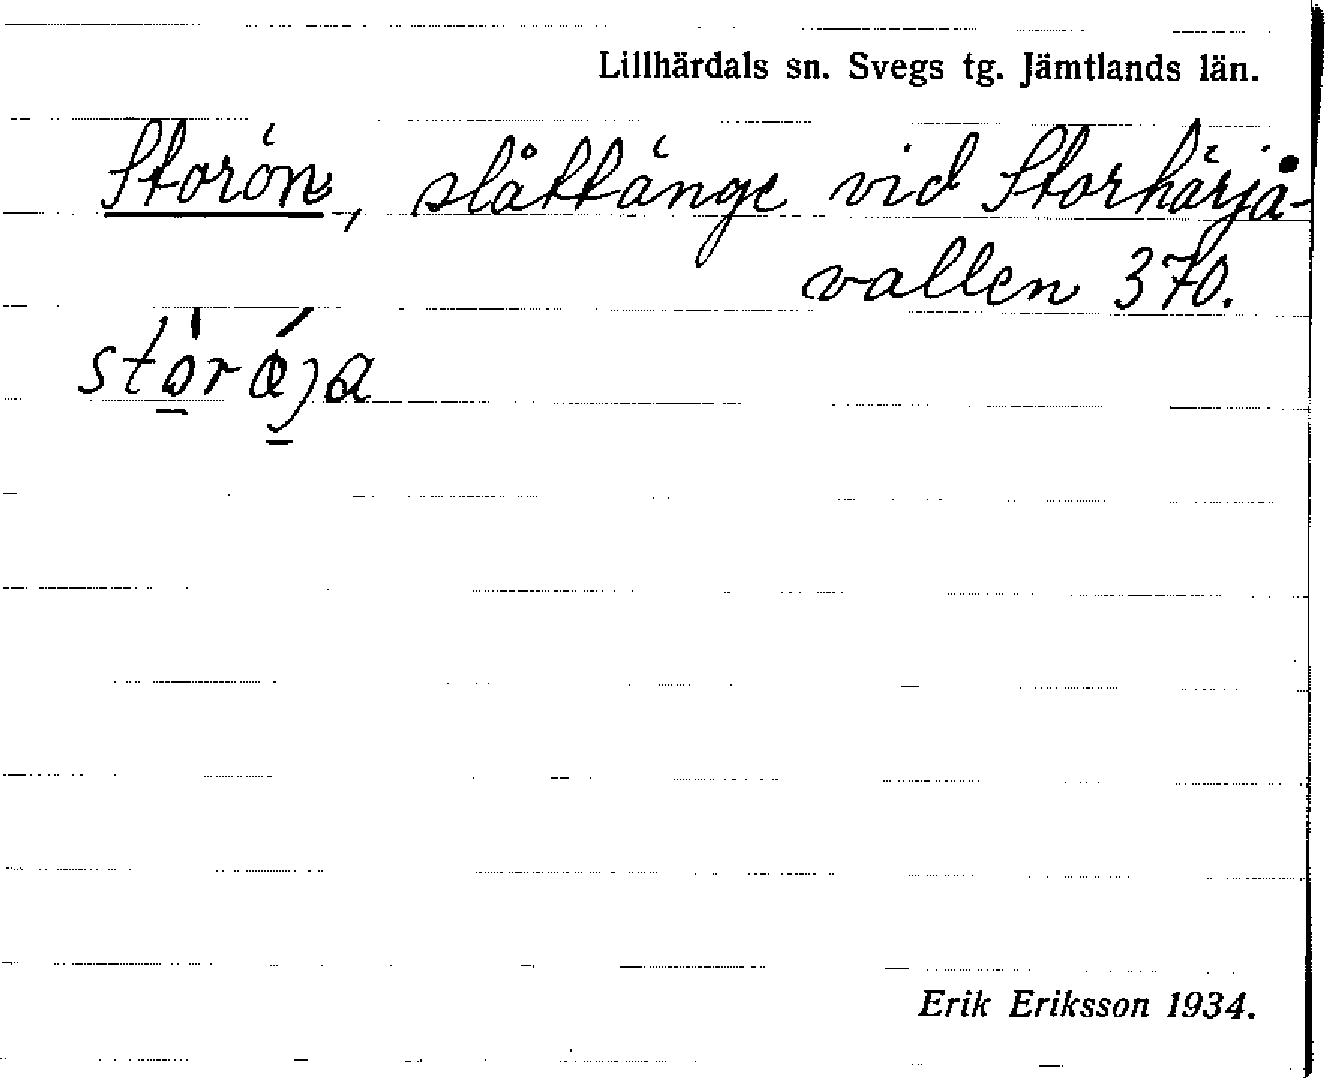 Lillhärdals sn. Svegs tg. Jämtlands län.
Storön, slåttänge vid Storhärjå-
vallen 370.
Erik Eriksson 1934.